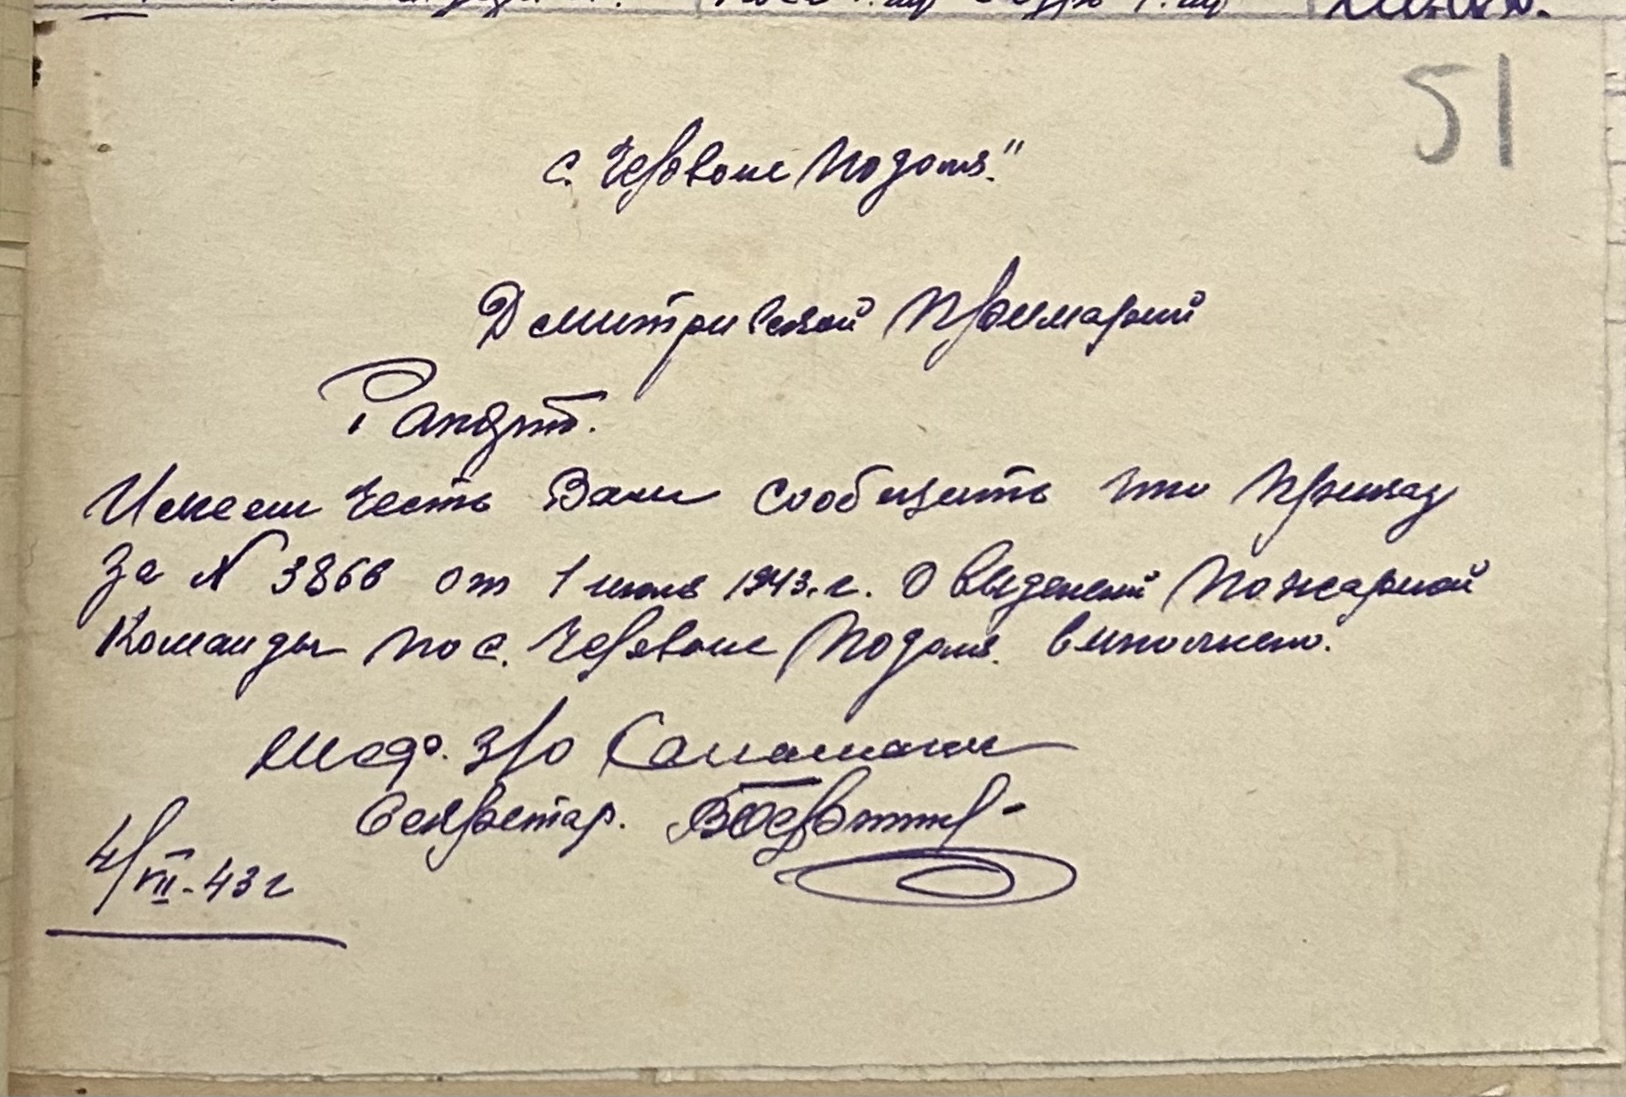 51
с. Червоне Подоля."
Дмитриевской Примарии
Рапорт.
Имеем честь Вам сообщить что приказ
За № 3866 от 1 июля 1943.г. О выделении Пожарной
Команды по с. Червоне Подоля. выполнено.
Шеф. З/О
Секретар.
4/VII-43г